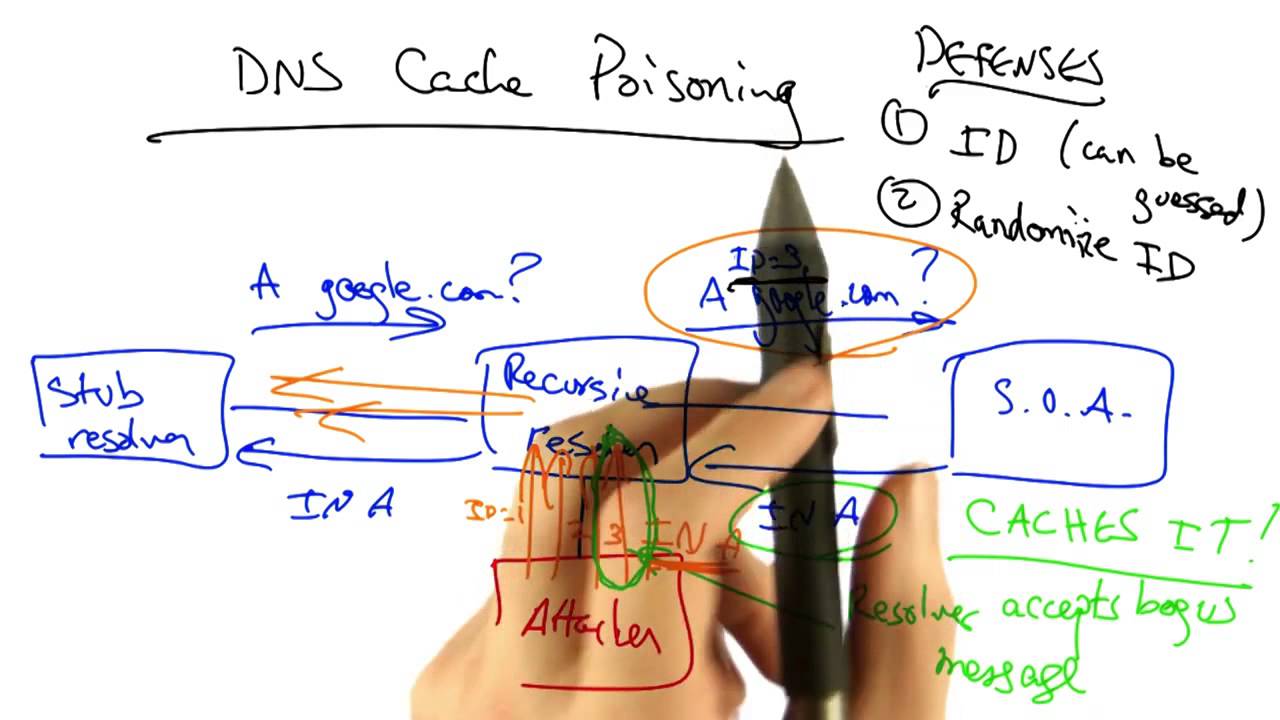 DNS Cache Poisoning
DEFENSES
① ID (can be
guessed)
② Randomize ID
A google.com?
ID=3,
A google.com?
Stub
resolver
Recursive
S.O.A.
IN A
ID=1
2
3
IN A
IN A
Attacker
CACHES IT!
Resolver accepts bogus
message